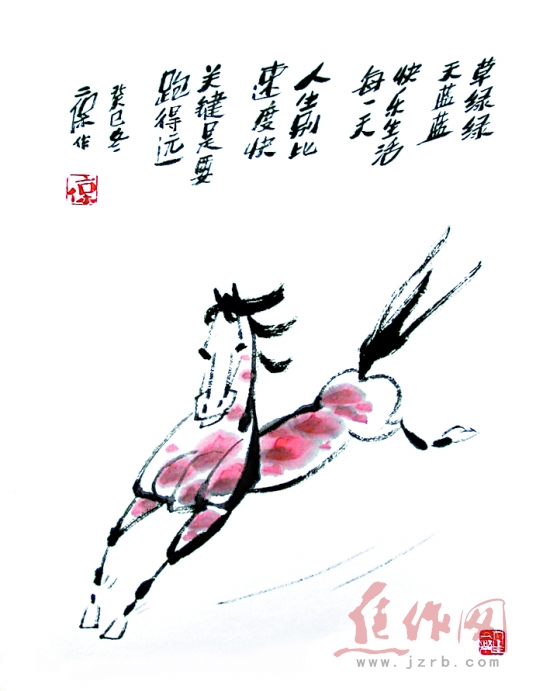 草绿绿
天蓝蓝
快乐生活
每一天
人生别比
速度快
关键是要
跑得远
癸巳冬
作
焦作网
www.jzrb.com